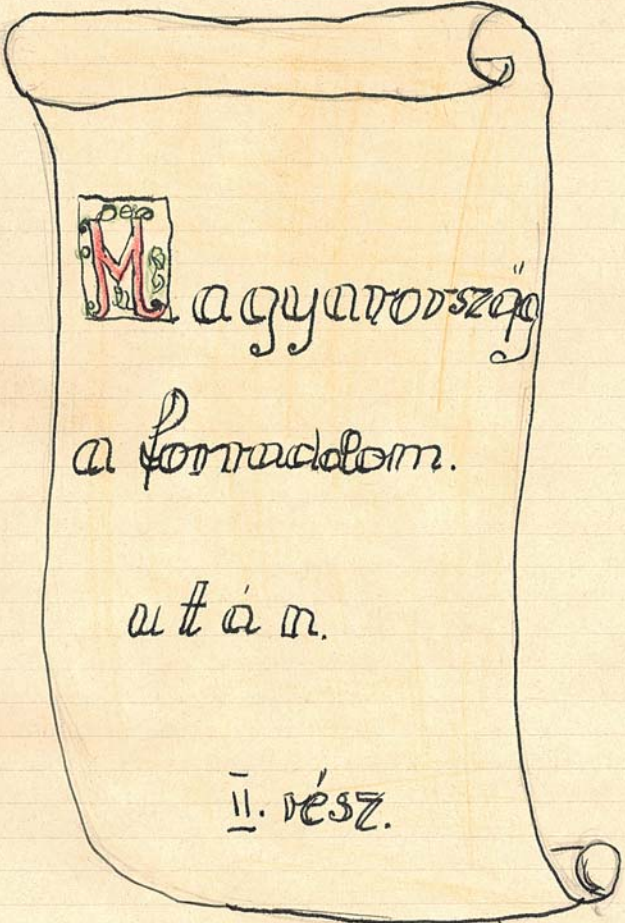 Magyarország
a forradalom.
után.
II. rész.